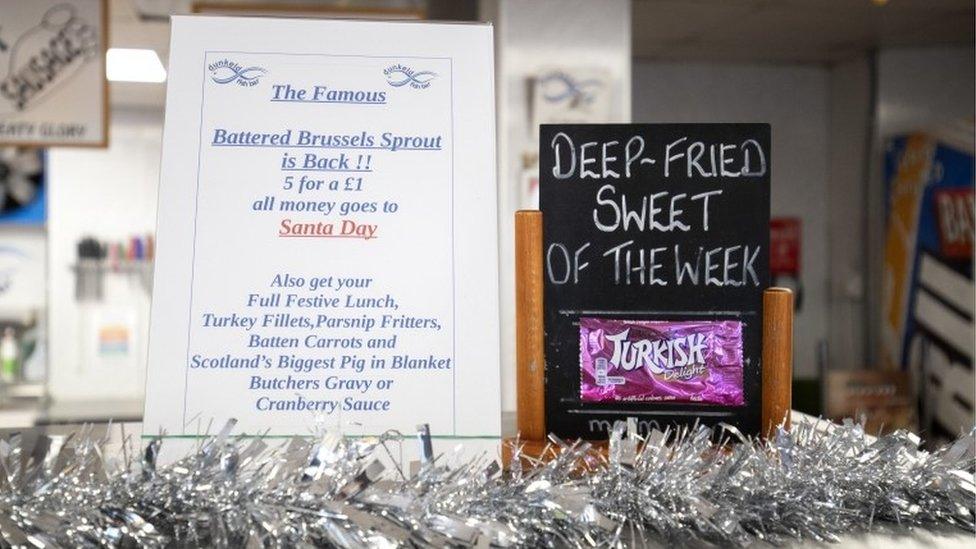 SAUSAGES
EATY GLORY
dunkeld
fish bar
dunkeld
fish bar
The Famous
Battered Brussels Sprout
is Back !!
5 for a £1
all money goes to
Santa Day
Also get your
Full Festive Lunch,
Turkey Fillets,Parsnip Fritters,
Batten Carrots and
Scotland's Biggest Pig in Blanket
Butchers Gravy or
Cranberry Sauce
DEEP-FRIED
SWEET
OF THE WEEK
TURKISH
Delight
BAR